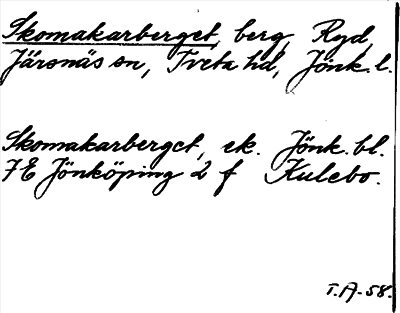 Skomakarberget, berg, Ryd,
Järsnäs sn, Tveta hd, Jönk. l.
Skomakarberget, ek. Jönk. bl.
7E Jönköping 2 f Kulebo.
T.A.-58.